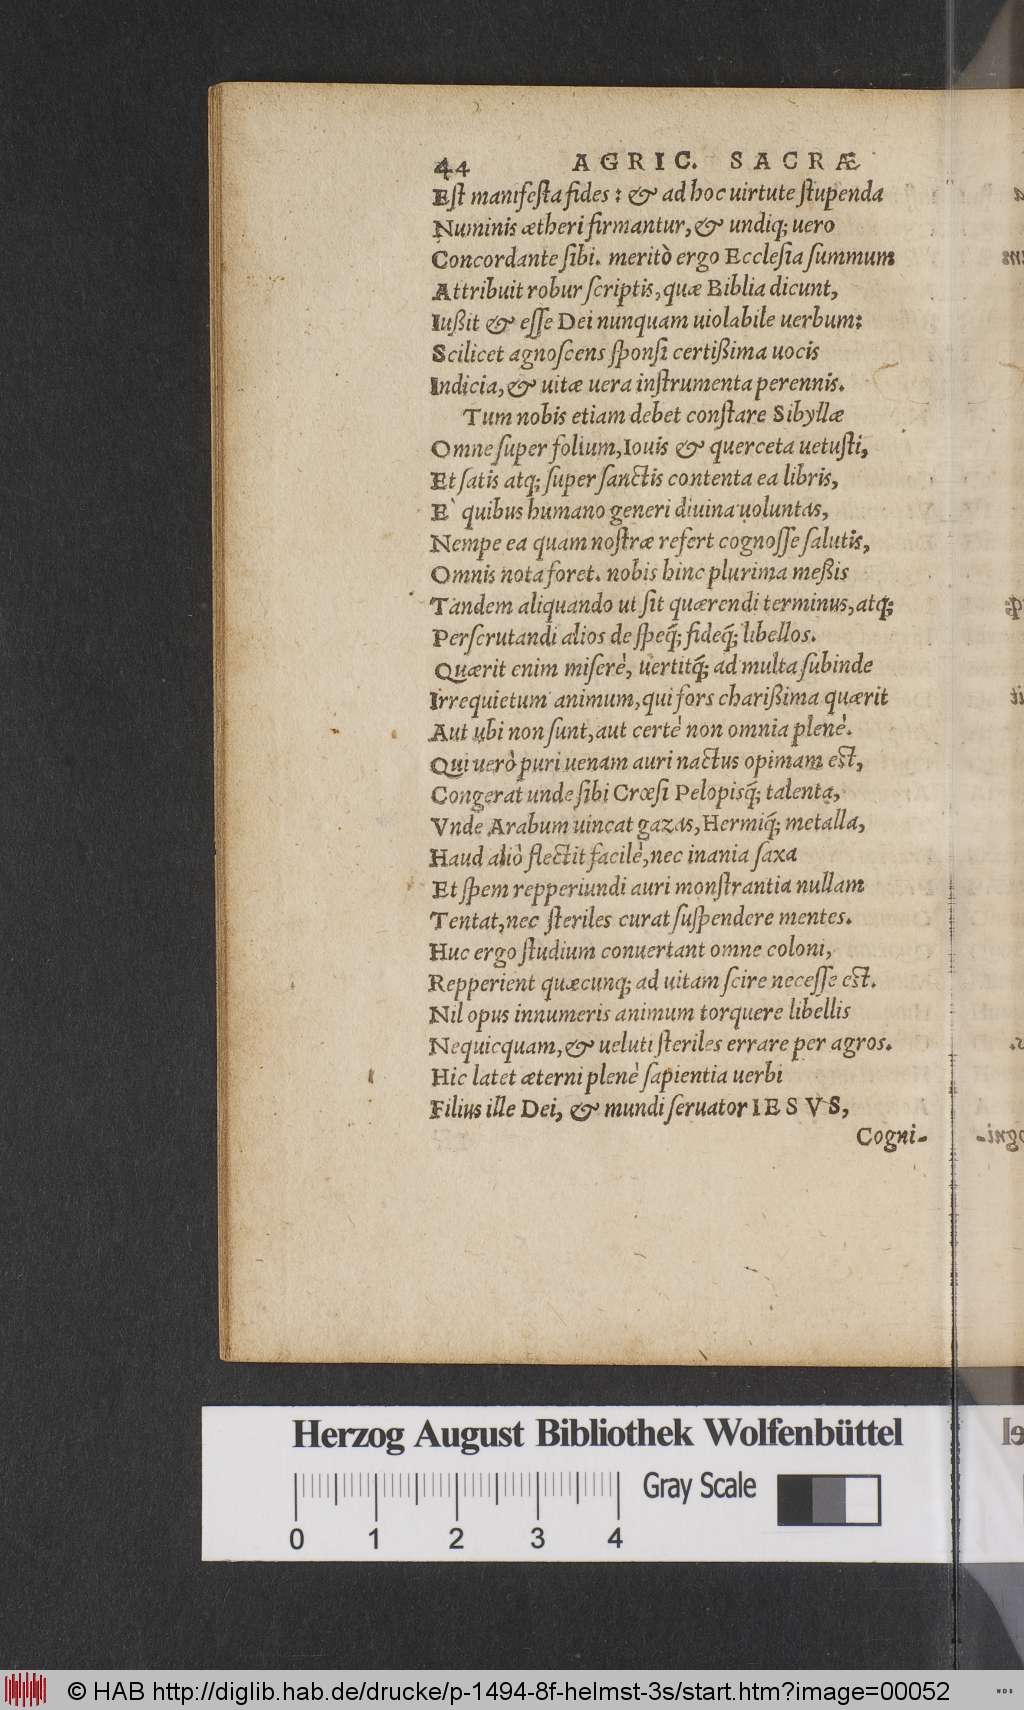 44 AGRIC. SACRÆ
Eſt manifeſta fides: & ad hoc uirtute ſtupenda
Numinis ætheri firmantur, & undiq; uero
Concordante ſibi. meritò ergo Eccleſia ſummum
Attribuit robur ſcriptis, quæ Biblia dicunt,
Iußit & eſſe Dei nunquam uiolabile uerbum:
Scilicet agnoſcens ſponſi certißima uocis
Indicia, & uitæ uera inſtrumenta perennis.
Tum nobis etiam debet conſtare Sibyllæ
Omne ſuper folium, Iouis & querceta uetuſti,
Et ſatis atq; ſuper ſanctis contenta ea libris,
E` quibus humano generi diuina uoluntas,
Nempe ea quam noſtræ refert cognoſſe ſalutis,
Omnis nota foret. nobis hinc plurima meßis
Tandem aliquando ut ſit quærendi terminus, atq;
Perſcrutandi alios de ſpeq́; fideq́; libellos.
Quærit enim miſerè, uertitq́; ad multa ſubinde
Irrequietum animum, qui fors charißima quærit
Aut ubi non ſunt, aut certè non omnia plenè.
Qui uerò puri uenam auri nactus opimam eſt,
Congerat unde ſibi Crœſi Pelopisq́; talenta,
Vnde Arabum uincat gazas, Hermiq́; metalla,
Haud aliò flectit facilè, nec inania ſaxa
Et ſpem repperiundi auri monſtrantia nullam
Tentat, nec ſteriles curat ſuſpendere mentes.
Huc ergo ſtudium conuertant omne coloni,
Repperient quæcunq; ad uitam ſcire neceſſe eſt.
Nil opus innumeris animum torquere libellis
Nequicquam, & ueluti ſteriles errare per agros.
Hic latet æterni plenè ſapientia uerbi
Filius ille Dei, & mundi ſeruator IESVS,
Cogni-
Herzog August Bibliothek Wolfenbüttel
Gray Scale
0 1 2 3 4
© HAB http://diglib.hab.de/drucke/p-1494-8f-helmst-3s/start.htm?image=00052